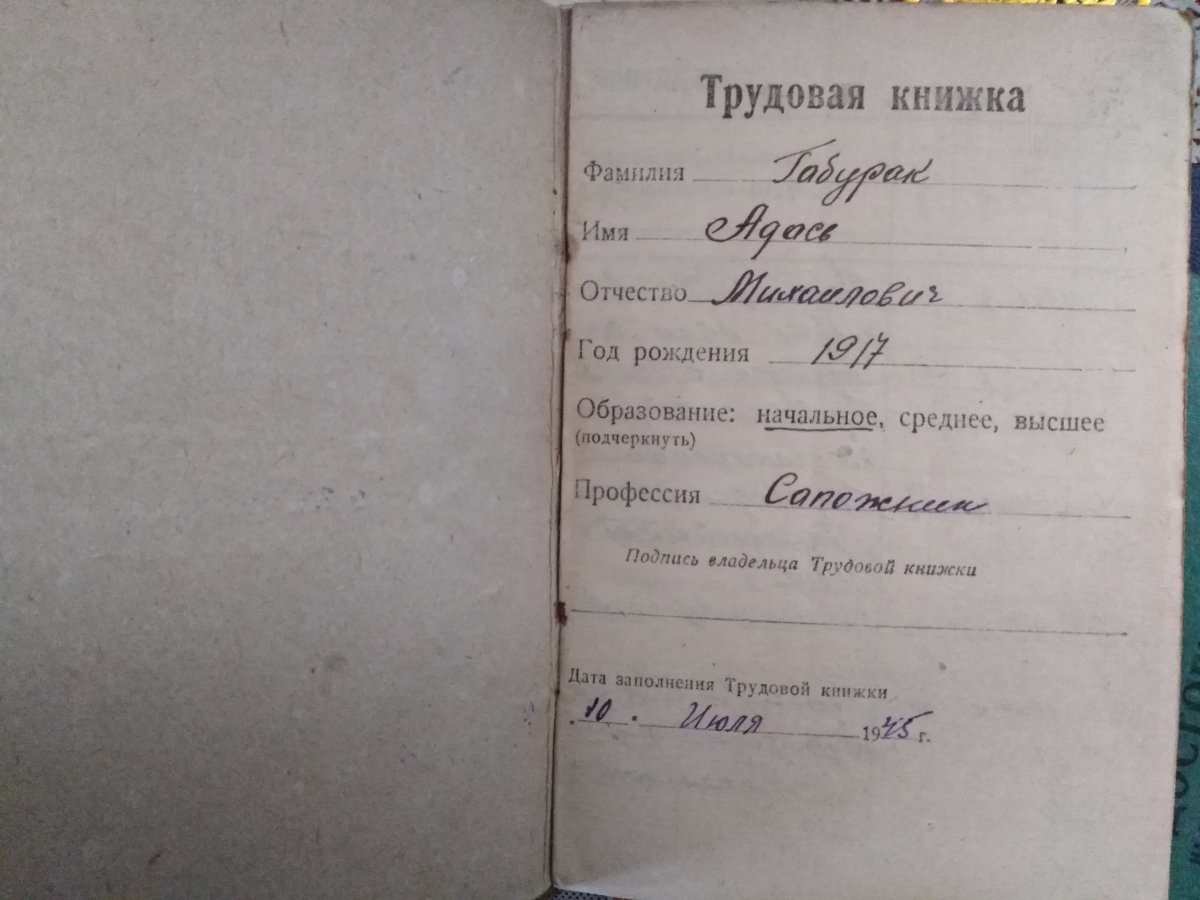 Трудовая книжка
Фамилия Габурак
Имя Адась
Отчество Михаилович
Год рождения 1917
Образование: начальное, среднее, высшее
(подчеркнуть)
Профессия Сапожник
Подпись владельца Трудовой книжки
Дата заполнения Трудовой книжки
"10" Июля 1945 г.